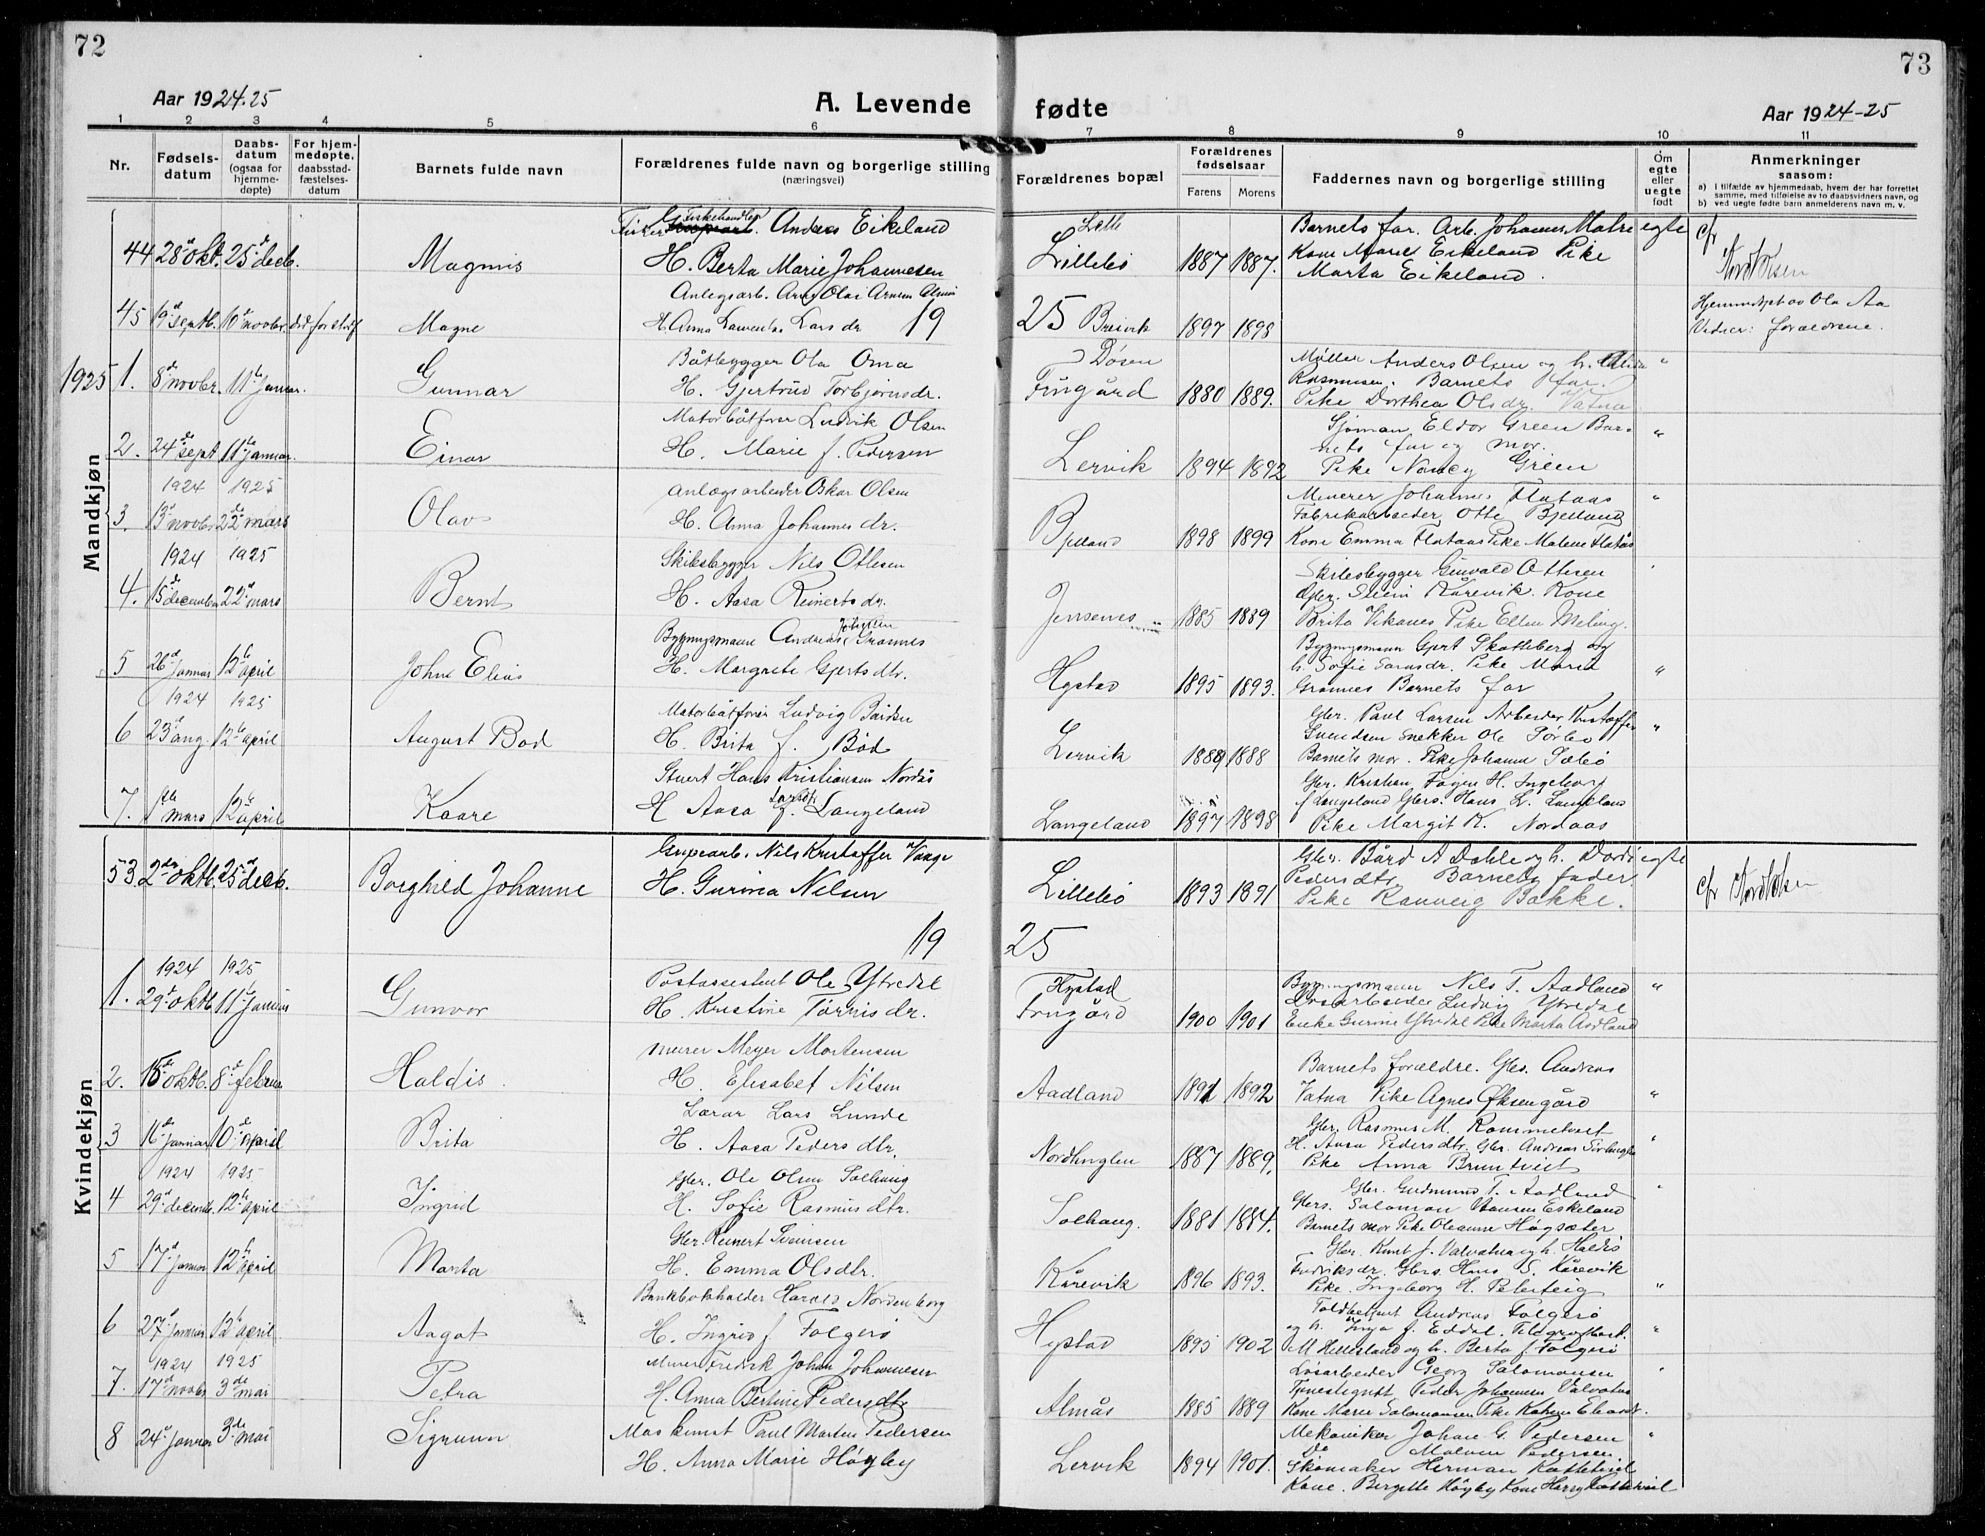 72
73
Aar 1924-25
A. Levende
fødte
Aar 1924-25
1 2 3 4 5 6 7 8 9 10 11
Nr.
Fødselsdatum
Daabsdatum (ogsaa for hjemmedøpte)
For hjemmedøpte, daabsstadfæstelsesdatum
Barnets fulde navn
Forældrenes fulde navn og borgerlige stilling
(næringsvei)
Forældrenes bopæl
Forældrenes fødselsaar
Farens Morens
Faddernes navn og borgerlige stilling
Om egte eller uegte født
Anmerkninger
saasom:
a) I tilfælde av hjemmedaab, hvem der har forrettet
samme, med tilføielse av to daabsvidners navn, og
b) ved uegte fødte barn anmelderens navn m. v.
Mandkjøn
Anders Eikeland
Barnets far. Arb. Johannes Matre egte
44 28 okt. 25 decb. Magnus H. Berta Marie Johannesen Lillebø 1887 1887. Kone Marie Eikeland Pike
Marta Eikeland.
45 19 septb. 10 novbr. Magne
Breivik 1897 1898
Hjemmedøpt av Ola Aa
Vidner: forældrene.
19
25
Båtbygger Ola Oma
Døsen
1925 1. 8 novbr. 11 Januar. Gunnar H. Gjertrud Torbjørnsdr. Frugård 1880 1889.
Rasmussen. Barnets far.
Pike Dorthea Olsdr. Vatna
Motorbåtfører Ludvik Olsen
Sjømann Eldor Green Bar-
2. 24 sept 11 Januar. Einar H. Marie f. Pedersen Lervik 1894 1892
nets far og mor.
Pike Nancy Green
1924 1925
Anlægsarbeider Oskar Olsen
Minerer Johannes Flataas
3. 13 novbr 22 mars Olav H. Anna Johannesdr. Bjelland 1898 1899
Fabrikarbeider Otto Bjelland
Kone Emma Flataas Pike Malene Flatås
1924 1925
Skibsbygger Nils Ottesen
Skibsbygger Gunvald Ottesen
4. 15 december 22 mars Bernt H. Aasa Reinertsdr. Jensenes 1885 1889
Gbr. Svein Kårevik. Kone
Brita Vikanes Pike Ellen Meling.
Bygningsmann Andreas Johnsen Grannes
Bygningsmann Gjert Skatteberg og
5 26 Januar 12 april John Elias H. Margrete Gjertsdtr. Hystad 1895 1893.
h. Sofie Larsdr. Pike Maria
Grannes Barnets far
1924 1925
Motorbåtfører Ludvig Bårdsen
Gbr. Paul Larsen Arbeider Kristoffer
6 23 aug. 12 april August Bod H. Brita f. Bod Lervik 1889 1888
Svendsen Snekker Ole Sørbø
Barnets mor. Pike Johanna Sælø
Stuert Hans Kristiansen Nordås
Gbr. Kristian Fagen H. Ingeborg
7. 1 mars 12 april Kaare H Aasa Larsdt. f. Langeland Langeland 1897 1898
f Langeland Gbrs. Hans L. Langeland
Pike Margit K. Nordaas
Kvindekjøn
Grubearb. Nils Kristoffer Vaage
Gbr. Bård A Dale og h. Dordi egte
53 2 oktb. 25 decb. Borghild Johanne H. Gurina Nilsen Lillebø 1893 1891
Pedersdtr. Barnets fader.
Pike Rannveig Bakke.
19
25
1924 1925
Postassistent Ole Ytredal
Hystad
Bygningsmann Nils T. Aadland
1. 29 oktb. 11 Januar Gunvor H. Kristine Tørrisdr. Frugård 1900 1901
Løsarbeider Ludvig Ytredal
Enke Gurine Ytredal Pike Marta Aadland
Murer Meyer Mortensen
Barnets forældre. Gbr. Andreas
2. 15 oktb. 8 februar Haldis. H. Elisabet Nilsen Aadland 1891 1892 Vatna Pike Agnes Øksengård
Lærar Lars Lunde
Gbr. Rasmus M. Rommetveit
3 16 Januar 10 april Brita H. Aasa Pedersdtr. Nordhuglen 1887 1889.
H. Aasa Pedersdtr. Gbr. Andreas
Pike Anna Bruntveit
1924 1925
Gbr. Ole Olsen Solhaug
Gbr. Gudmund T. Aadland
4 29 decemb. 12 april Ingrid H. Sofie Rasmusdtr. Solhaug. 1881 1884.
Gbrs. Salomon Hansen Eskeland
Barnets mor Pike Oleanne Høgsæter
Gbr. Reinert Sveinsen
Gbr. Knut J. Valvatna og h. Haldis
5 17 Januar 12 april Marta H. Emma Olsdtr. Kårevik 1896 1893.
Fredriksdr. Gbrs. Hans S. Kårevik
Pike. Ingeborg H. Peterteig
Bankbokholder Harald Nordenborg
Toldbetjent Andreas Folgerø
6 27 Januar 12 april Aagot H. Ingrid f Folgerø Hystad 1895 1902
M Helleland og h. Berta f. Folgerø
1924 1925
Miner Fredrik Johan Johannesen
Løsarbeider Georg Salomonsen
7. 17 novbr 3 mai Petra H. Anna Bertine Pedersdtr Almås 1885 1889
Tjenestegutt Peder Johannesen Valvatna
Kone Marie Salomonsen Pike
Maskinist Paul Martin Pedersen
Mekaniker Johan G. Pedersen
8 24 Januar 3 mai Sigrunn H. Anna Marie Høyby Lervik 1894 1901.
Do Malvin Pedersen
Skomaker Herman Kattetvil
Kone. Birgitte Høyby Kone Harry Kattetvil